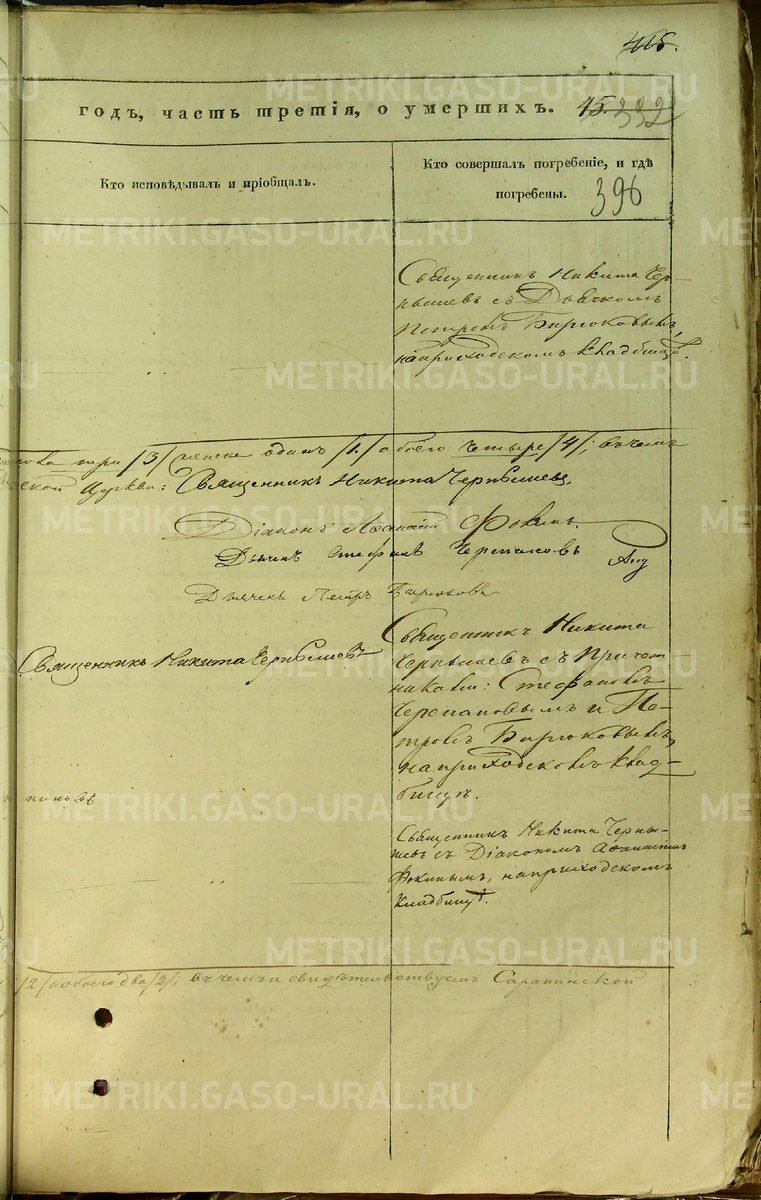 415.
годъ, часть третія, о умершихъ. 15. 332
Кто исповѣдывалъ и пріобщалъ.
Кто совершалъ погребеніе, и гдѣ
погребены.
396
Священникъ Никита Чер-
нышевъ съ Дьячкомъ
Петромъ Бирюковымъ,
на приходскомъ кладбищѣ.
три /3/ женска одинъ /1/ а обоего четыре /4/; въ чемъ
Церкви: Священникъ Никита Чернышевъ.
Діаконъ Фокинъ.
Дьячекъ Стефанъ Черепановъ
Дьячекъ Петръ Бирюковъ
Священникъ Никита Чернышевъ
Священникъ Никита
Чернышевъ съ Причет-
никами: Стефаномъ
Черепановымъ и Пе-
тромъ Бирюковымъ,
на приходскомъ клад-
бищѣ.
Священникъ Никита Черны-
шевъ съ Діакономъ Афанасіемъ
Фокинымъ, на приходскомъ
кладбищѣ.
/2/ а обоего два /2/; въ чемъ и свидѣтельствуемъ
METRIKI.GASO-URAL.RU